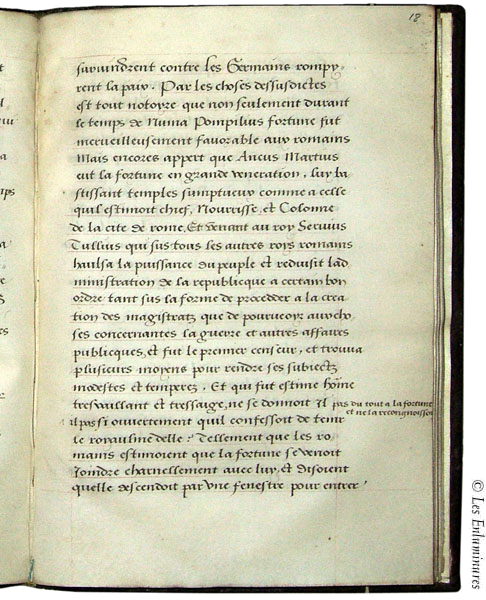 18
survindrent contre les Germains rompy-
rent la paix. Par les choses dessusdictes
est tout notoyre que non seulement durant
le temps de Numa Pompilius fortune fut
merveilleusement favorable aux romains
Mais encores appert que Ancus Martius
eut la fortune en grande veneration, luy ba
stissant temples sumptueux comme a celle
quil estimoit chief, Nourrisse, et Colonne
de la cite de rome, Et venant au roy Servius
Tullius qui sus tous les autres roys romains
haulsa la puissance du peuple et reduisit lad
ministration de la republicque a certain bon
ordre tant sus la forme de proceder a la crea
tion des magistratz que de pourveoyr aux cho
ses concernantes la guerre et autres affaires
publicques, et fut le premier censeur, et trouva
plusieurs moyens pour rendre ses subiectz
modestes et temperez. Et qui fut estime home
tresvaillant et tressaige, ne se donnoit Il pas du tout a la fortune
et ne la recongnoissoi
il pas si ouvertement quil confessoit de tenir
le royaulme delle? Tellement que les ro
mains estimoient que la fortune se venoit
Joindre charnellement avec luy, et disoient
quelle descendoit par Une fenestre pour entrer
© Les Enluminures